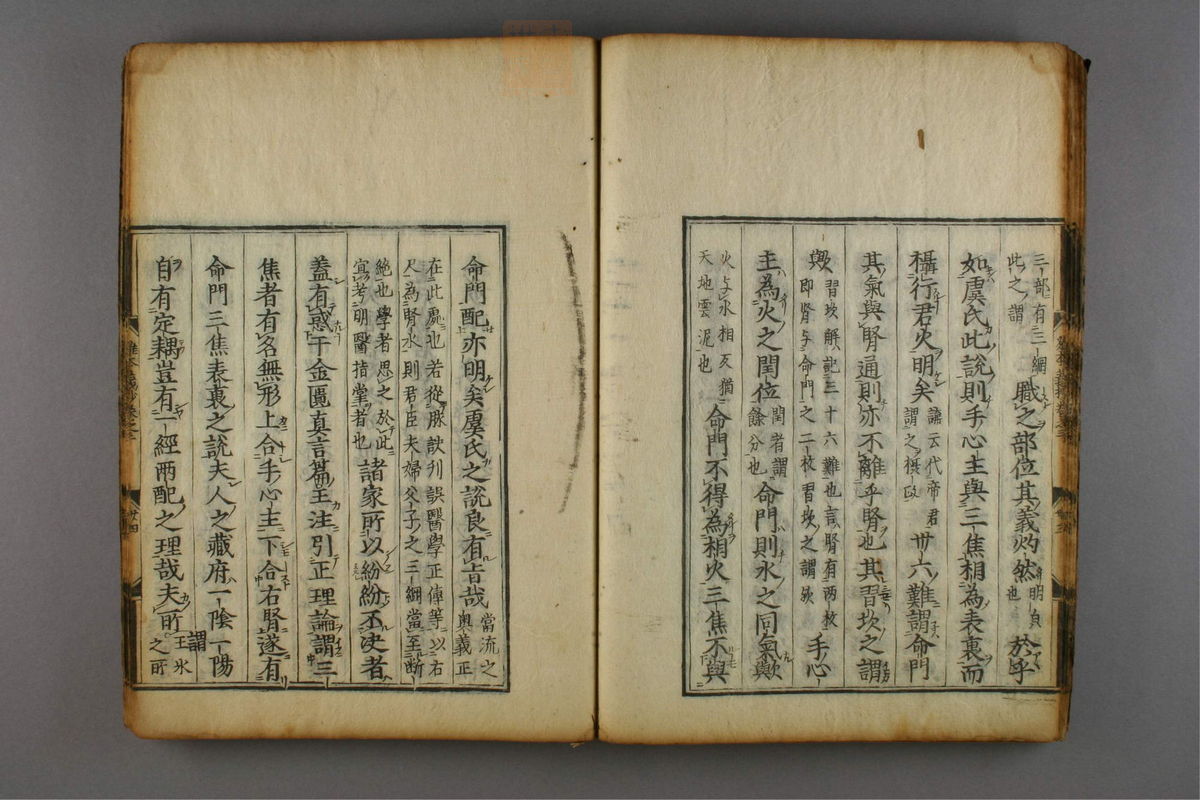 三部有三綱此之謂職之部位其義灼然明白也於乎
如虞氏此說則手心主與三焦相為表裏而
攝行君火明矣謙云代帝君謂之攝政丗六難謂命門
其氣與腎通則亦不離乎腎也其習坎之謂
歟習坎解說三十六難也言腎有兩枚即腎与命門之二枚習坎之謂歟手心
主為火之閏位閏者謂餘分也命門則水之同氣歟
火与水相反猶天地雲泥也命門不得為相火三焦不與
命門配亦明矣虞氏之說良有旨哉當流之奧義正
在此處也若從脉訣刋誤醫學正傳等以右尺為腎水則君臣夫婦父子之三綱當至断
絶也學者思之於此宜考明醫措掌者也諸家所以紛紛不决者
蓋有惑于金匱真言篇王注引正理論謂三
焦者有名無形上合手心主下合右腎遂有
命門三焦表裏之說夫人之藏府一陰一陽
自有定耦豈有一經兩配之理哉夫所謂王氷之所